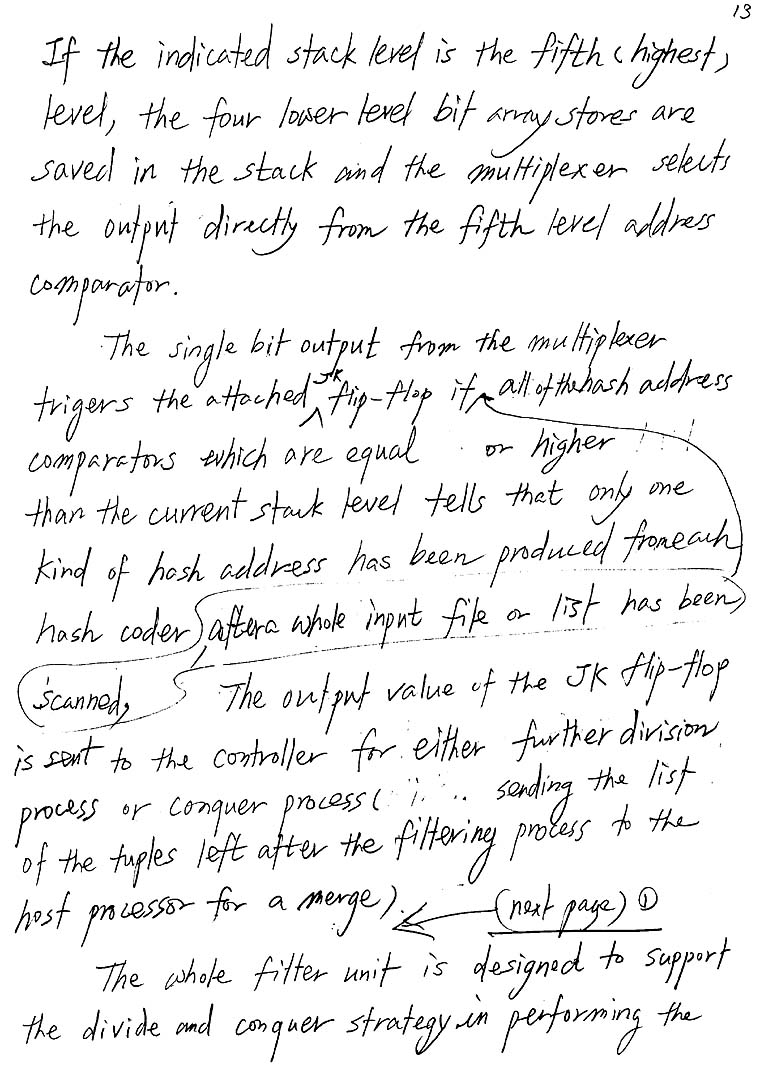 13
If the indicated stack level is the fifth (highest)
level, the four lower level bit array stores are
saved in the stack and the multiplexer selects
the output directly from the fifth level address
comparator.
The single bit output from the multiplexer
trigers the attached JK flip-flop if all of the hash address
comparators which are equal or higher
than the current stack level tells that only one
kind of hash address has been produced from each
hash coder after a whole input file or list has been
scanned, The output value of the JK flip-flop
is sent to the controller for either further division
process or conquer process ( sending the list
of the tuples left after the filtering process to the
host processor for a merge).
(next page) ①
The whole filter unit is designed to support
the divide and conquer strategy in performing the